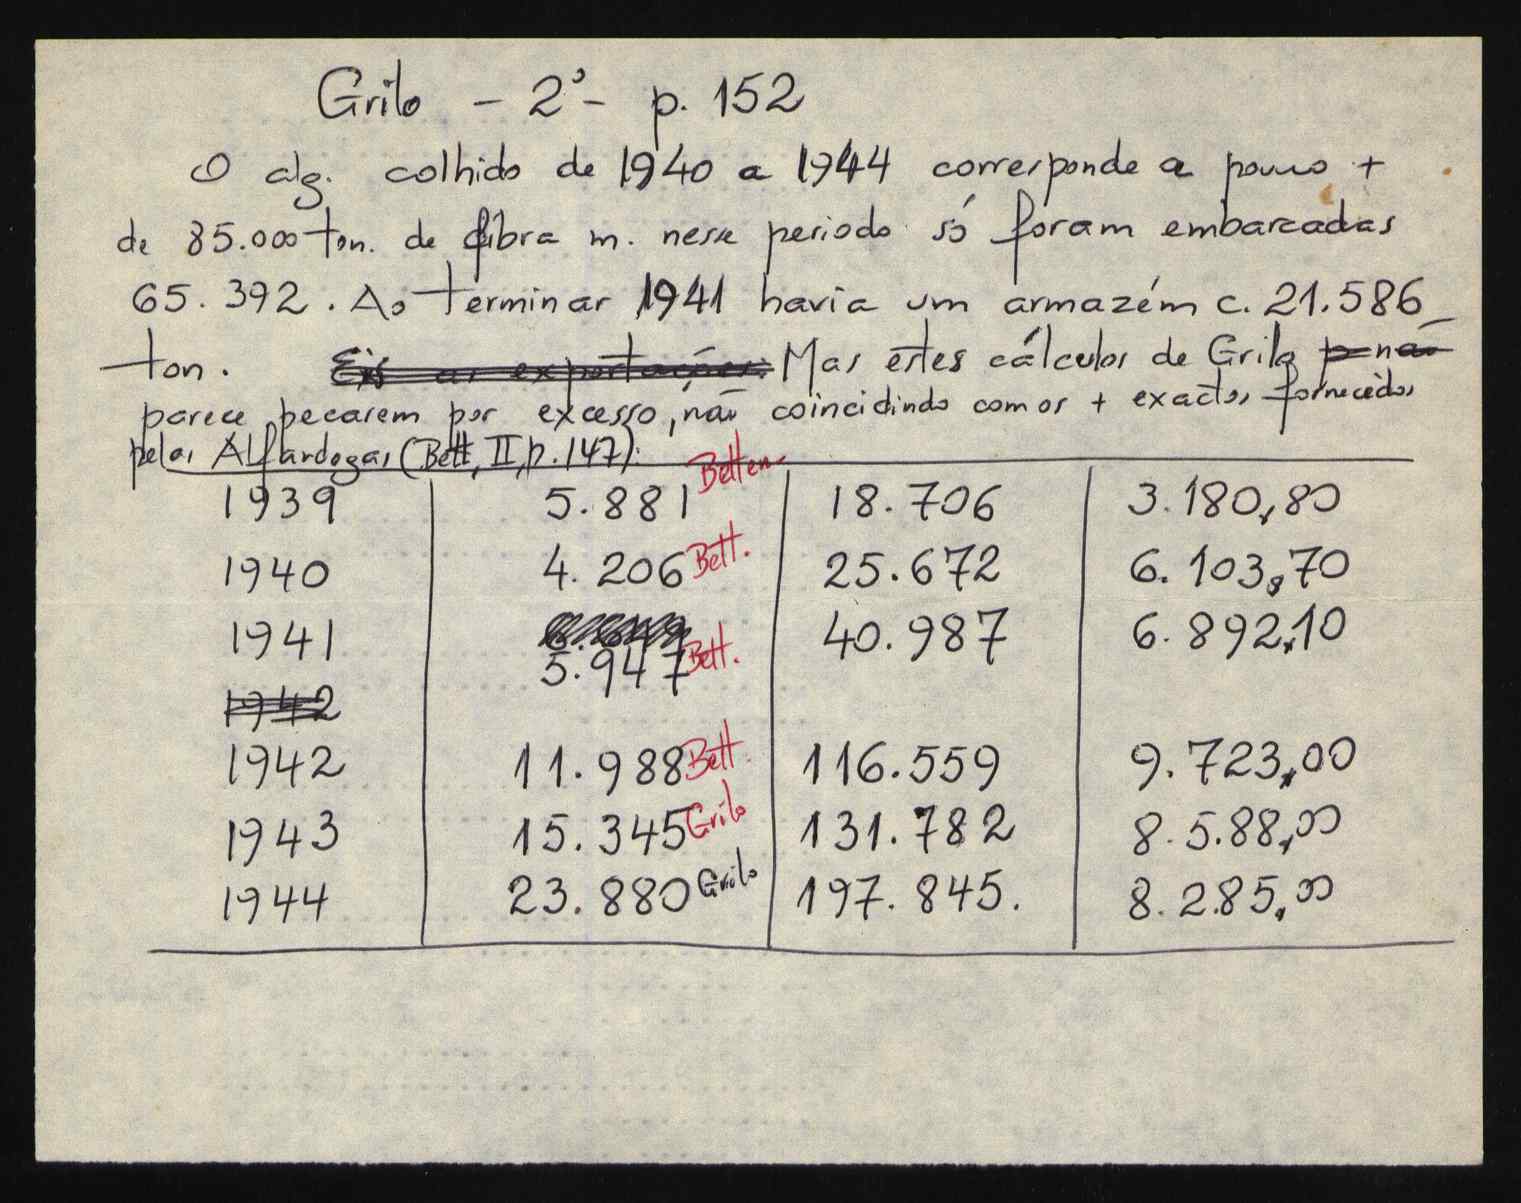 Grilo - 2º - p. 152
O alg. colhido de 1940 a 1944 corresponde a pouco +
de 85.000 ton. de fibra m. nesse periodo só foram embarcadas
65.392. Ao terminar 1941 havia um armazém c. 21.586
ton. Eis as exportações: Mas estes cálculos de Grilo p não
parece pecarem por excesso, não coincidindo com os + exactos fornecidos
pelas Alfandegas (Bett, II, p. 147):
1939 5.881 Betten 18.706 3.180,80
1940 4.206 Bett. 25.672 6.103,70
1941 5.947 Bett. 40.987 6.892,10
1942
1942 11.988 Bett. 116.559 9.723,00
1943 15.345 Grilo 131.782 8.5.88,00
1944 23.880 Grilo 197.845. 8.285,00